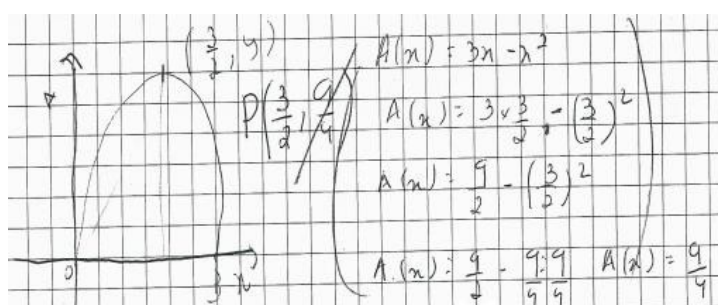 (3/2, y)
A
P(3/2, 9/4)
0
3
x
A(x) = 3x - x²
A(x) = 3 × 3/2 - (3/2)²
A(x) = 9/2 - (3/2)²
A(x) = 9/2 - 9/4 A(x) = 9/4